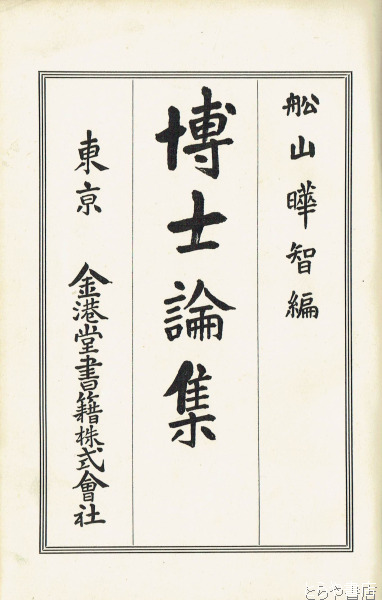 舩山曄智編
博士論集
東亰 金港堂書籍株式會社
とらや書店